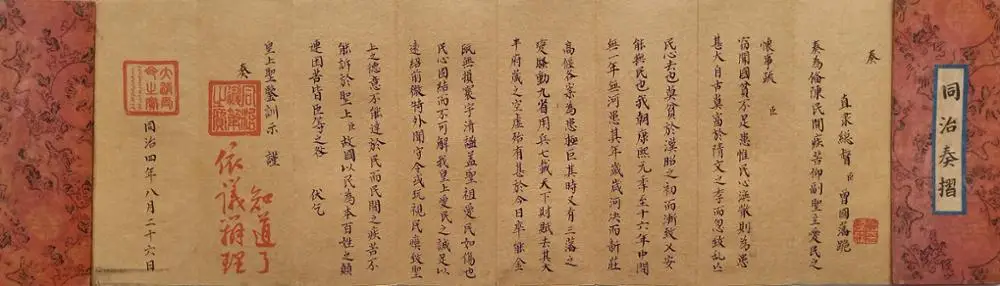 同治奏摺
奏
直隶總督臣曾國藩跪
奏為俻陳民間疾苦仰副聖主愛民之
懷事竊 臣
聞國貧不足患惟民心渙散則為患
甚大自古莫富於隋文之季而忽致乱亡
民心去也莫貧於漢昭之初而漸致乂安
能撫民也我朝康熙元季至十六年中間
無一年無河患其年歲歲河決而新莊
高堰各案為患極巨其時又有三藩之
變騷動九省用兵七載天下財賦去其大
半府藏之空虛殆有甚於今日卒能金
甌無損寰宇清謐盖聖祖愛民如傷也
民心固結而不可解我皇上愛民之誠足以
遠紹前徽特外間守令或玩視民瘼致聖
上之德意不能達於民而民間之疾苦不
能訴於聖上臣故國以民為本百姓之顛
連困苦皆臣等之咎 伏乞
皇上聖鑒訓示 謹
奏
知道了
依議辦理
同治四年八月二十六日